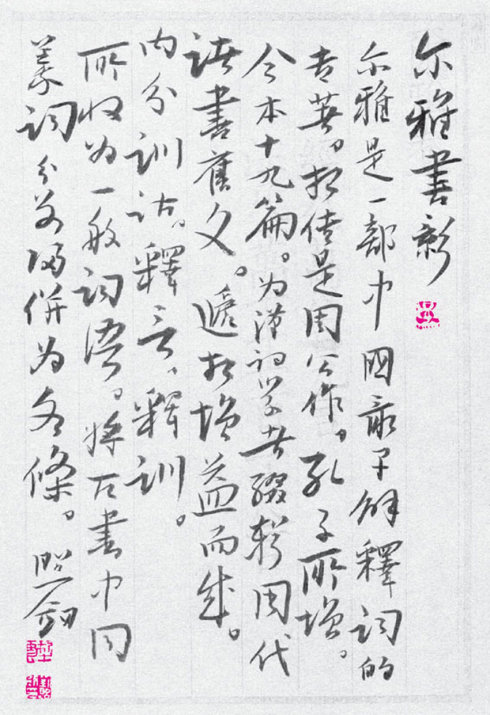 尔雅書影
尔雅是一部中國最早解釋词的
专著。相传是周公作。孔子所增。
今本十九篇。为汉初学者缀辑周代
诸書舊文。遞相增益而成。
内分训诂。釋言。釋训。
所收为一般词语。将古書中同
义词分别归併为各條。